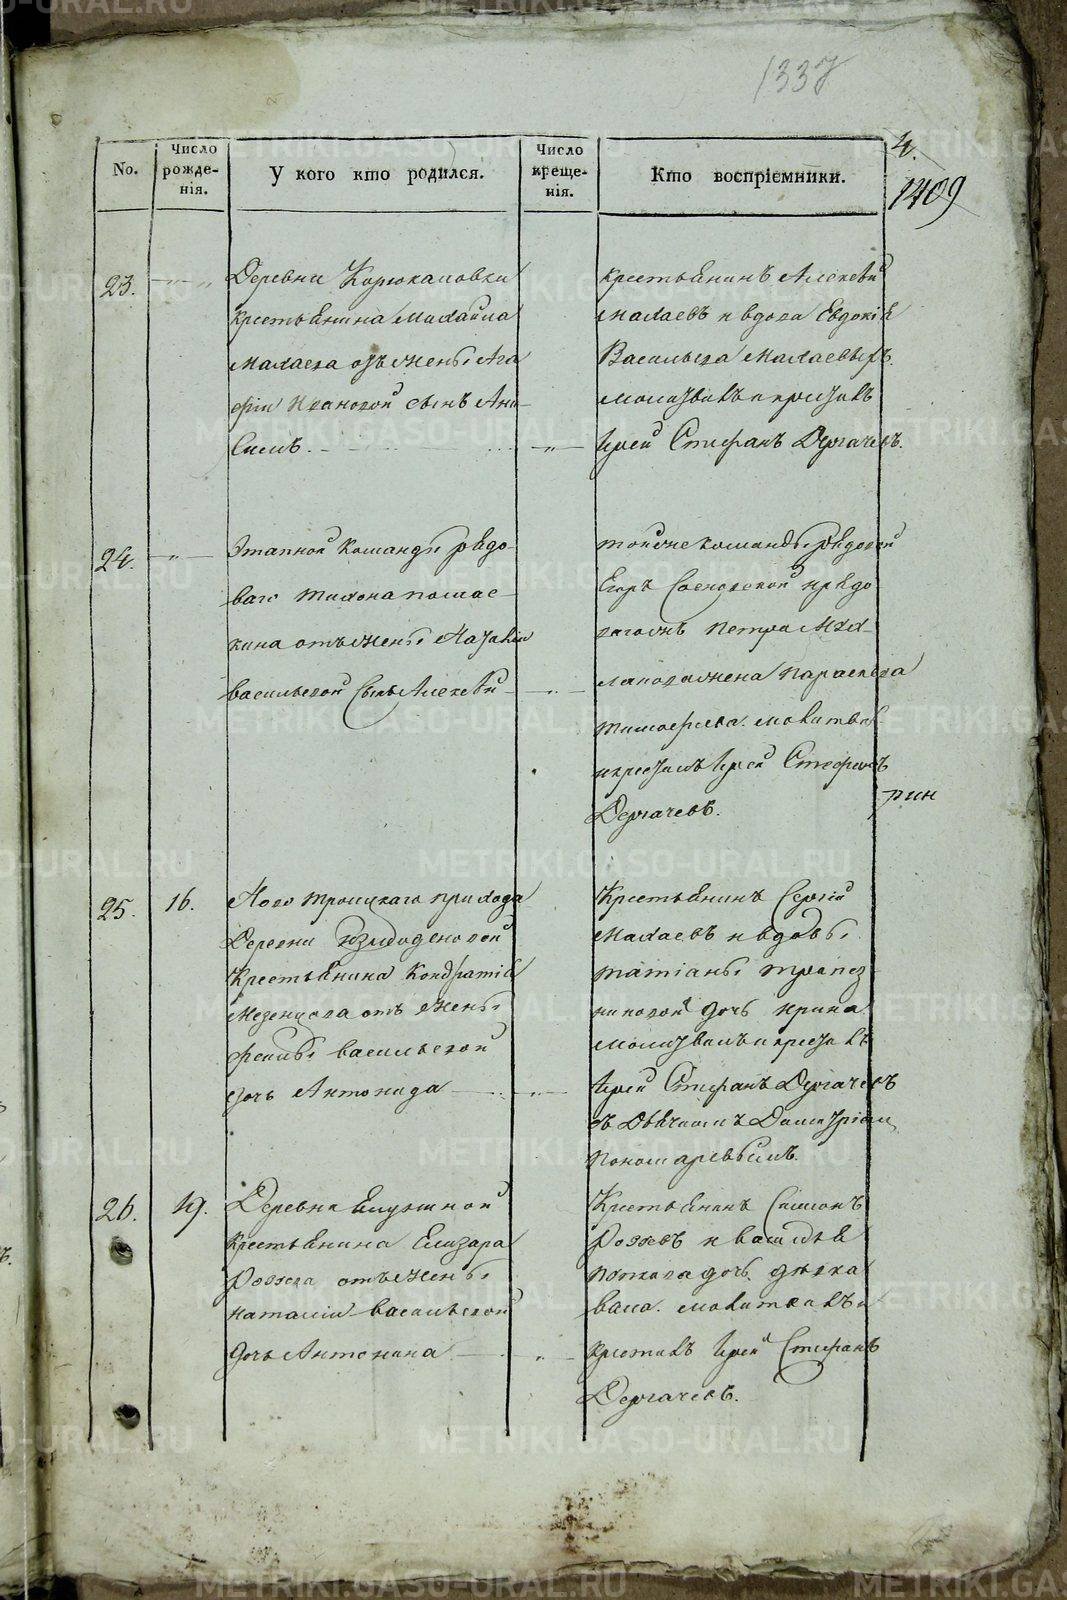 1337
4.
1409
No.
Число рожде-нія.
У кого кто родился.
Число креще-нія.
Кто воспріемники.
23.
Деревни Корюкаловки
крестьянина Михайла
Малаева отъ жены Ага
фіи Ивановой сынъ Ани-
симъ.
крестьянинъ Алексѣй
Малаевъ и вдова Евдокія
Васильева Малаевыхъ.
молитвилъ и крестилъ
Іерей Стефанъ Дергачевъ.
24.
Этапной команды рядо-
ваго Тихона
отъ жены
Васильевой сынъ Алексѣй
той же команды рядовой
Егоръ Сосновской и рядо
ваго Петра
жена Параскева
Тимофеева. молитвил
и крестилъ Іерей Стефанъ
Дергачевъ.
25.
16.
Ново Троицкаго прихода
Деревни
Крестьянина Кондратія
Мезенцова отъ жены
Васильевой
дочь Антонида
Крестьянинъ Сергій
Малаевъ и вдовы
Татіаны Трапез
никовой дочь Ирина
молитвилъ и крестилъ
Іерей Стефанъ Дергачевъ
съ Дьячкомъ Димитріемъ
Пономаревымъ.
26.
19.
Деревни
Крестьянина Елизара
отъ жены
Наталіи Васильевой
дочь Антонина
Крестьянинъ Симонъ
дочь дѣвка
молитвилъ и
крестилъ Іерей Стефанъ
Дергачевъ.
METRIKI.GASO-URAL.RU